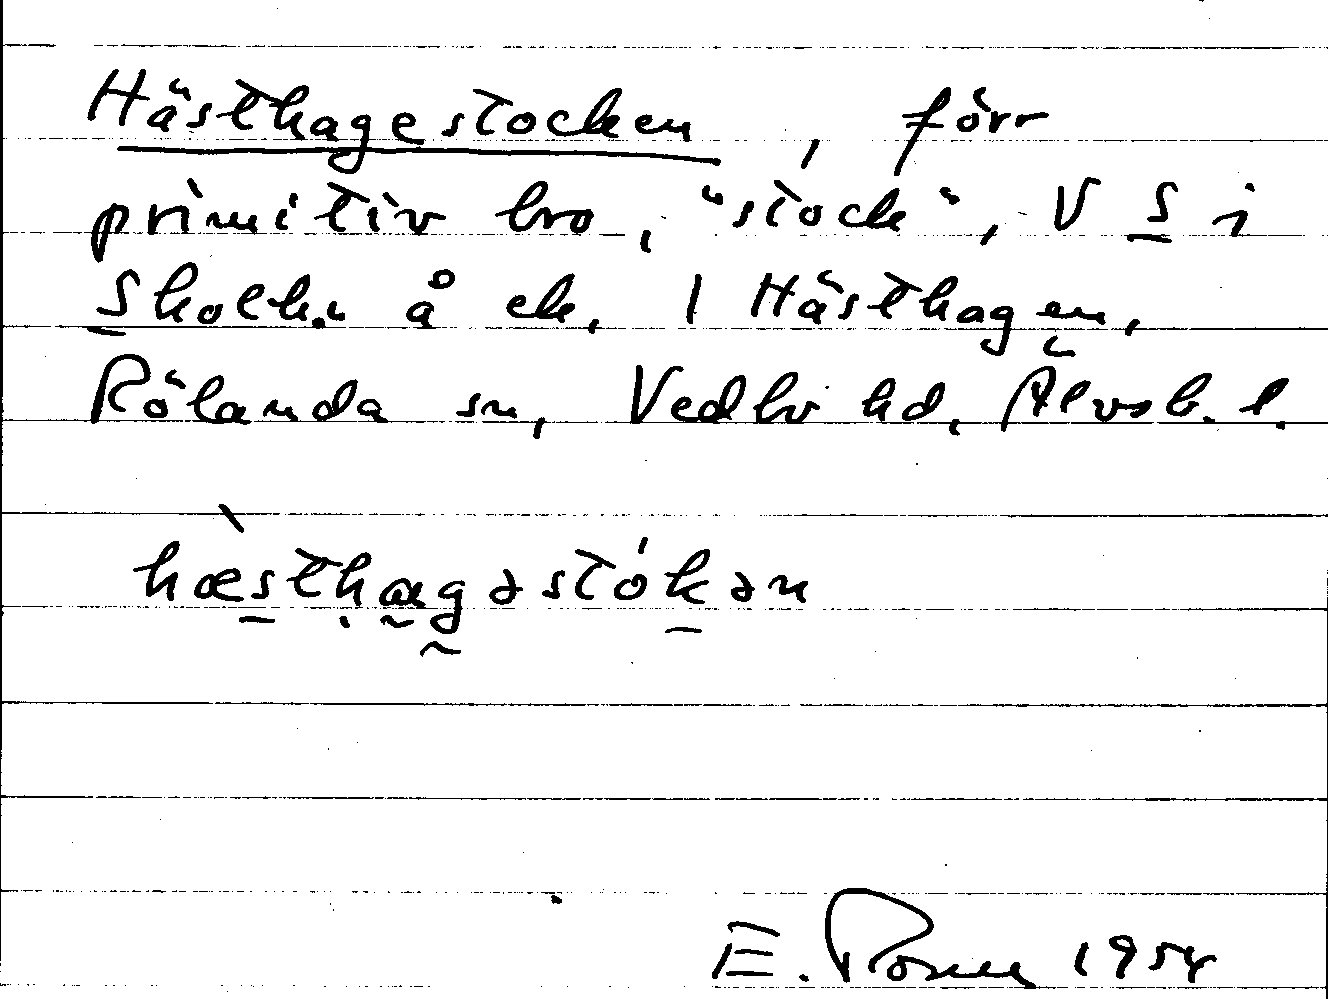 Hästhagestocken, förr
primitiv bro, "stock", V S i
å ek. 1 Hästhagen,
Rölanda sn, Vedbo hd, Älvsb. l.
hæsthagəstòkən
E. 1954